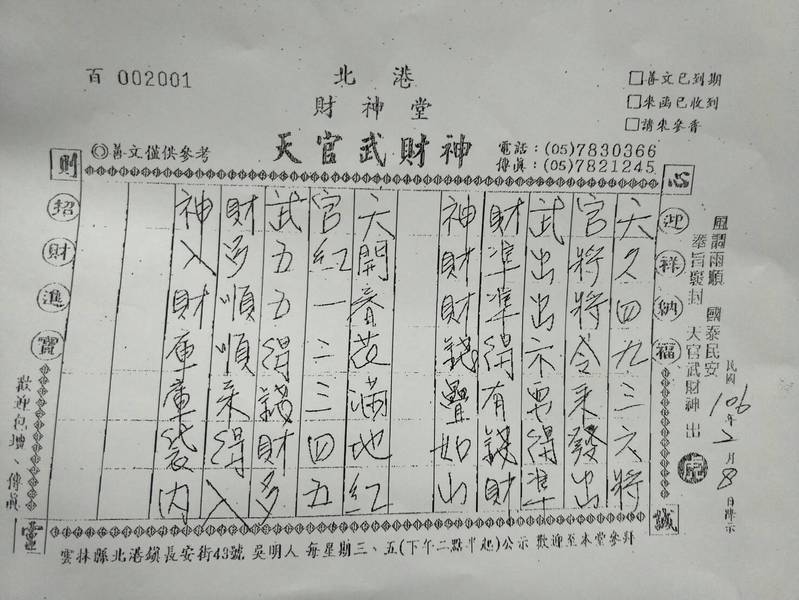 百 002001
北港
財神堂
天官武財神
◎善文僅供參考
電話：(05)7830366
傳真：(05)7821245
□善文已到期
□來函已收到
□請來參香
心
誠
則
靈
迎祥納福
招財進寶
風調雨順 國泰民安
奉旨發封 天官武財神 出
民國106年2月8日降示
天久四九三六將
官將將令來發出
武出出示要得準
財準準得有錢財
神財財錢疊如山
天開春芸滿地紅
官紅一二三四五
武五五得錢財多
財多順順來得入
神入財庫庫袋內
歡迎包壇、傳真
雲林縣北港鎮長安街43號 吳明人 每星期三、五(下午二點半起)公示 歡迎至本堂參拜